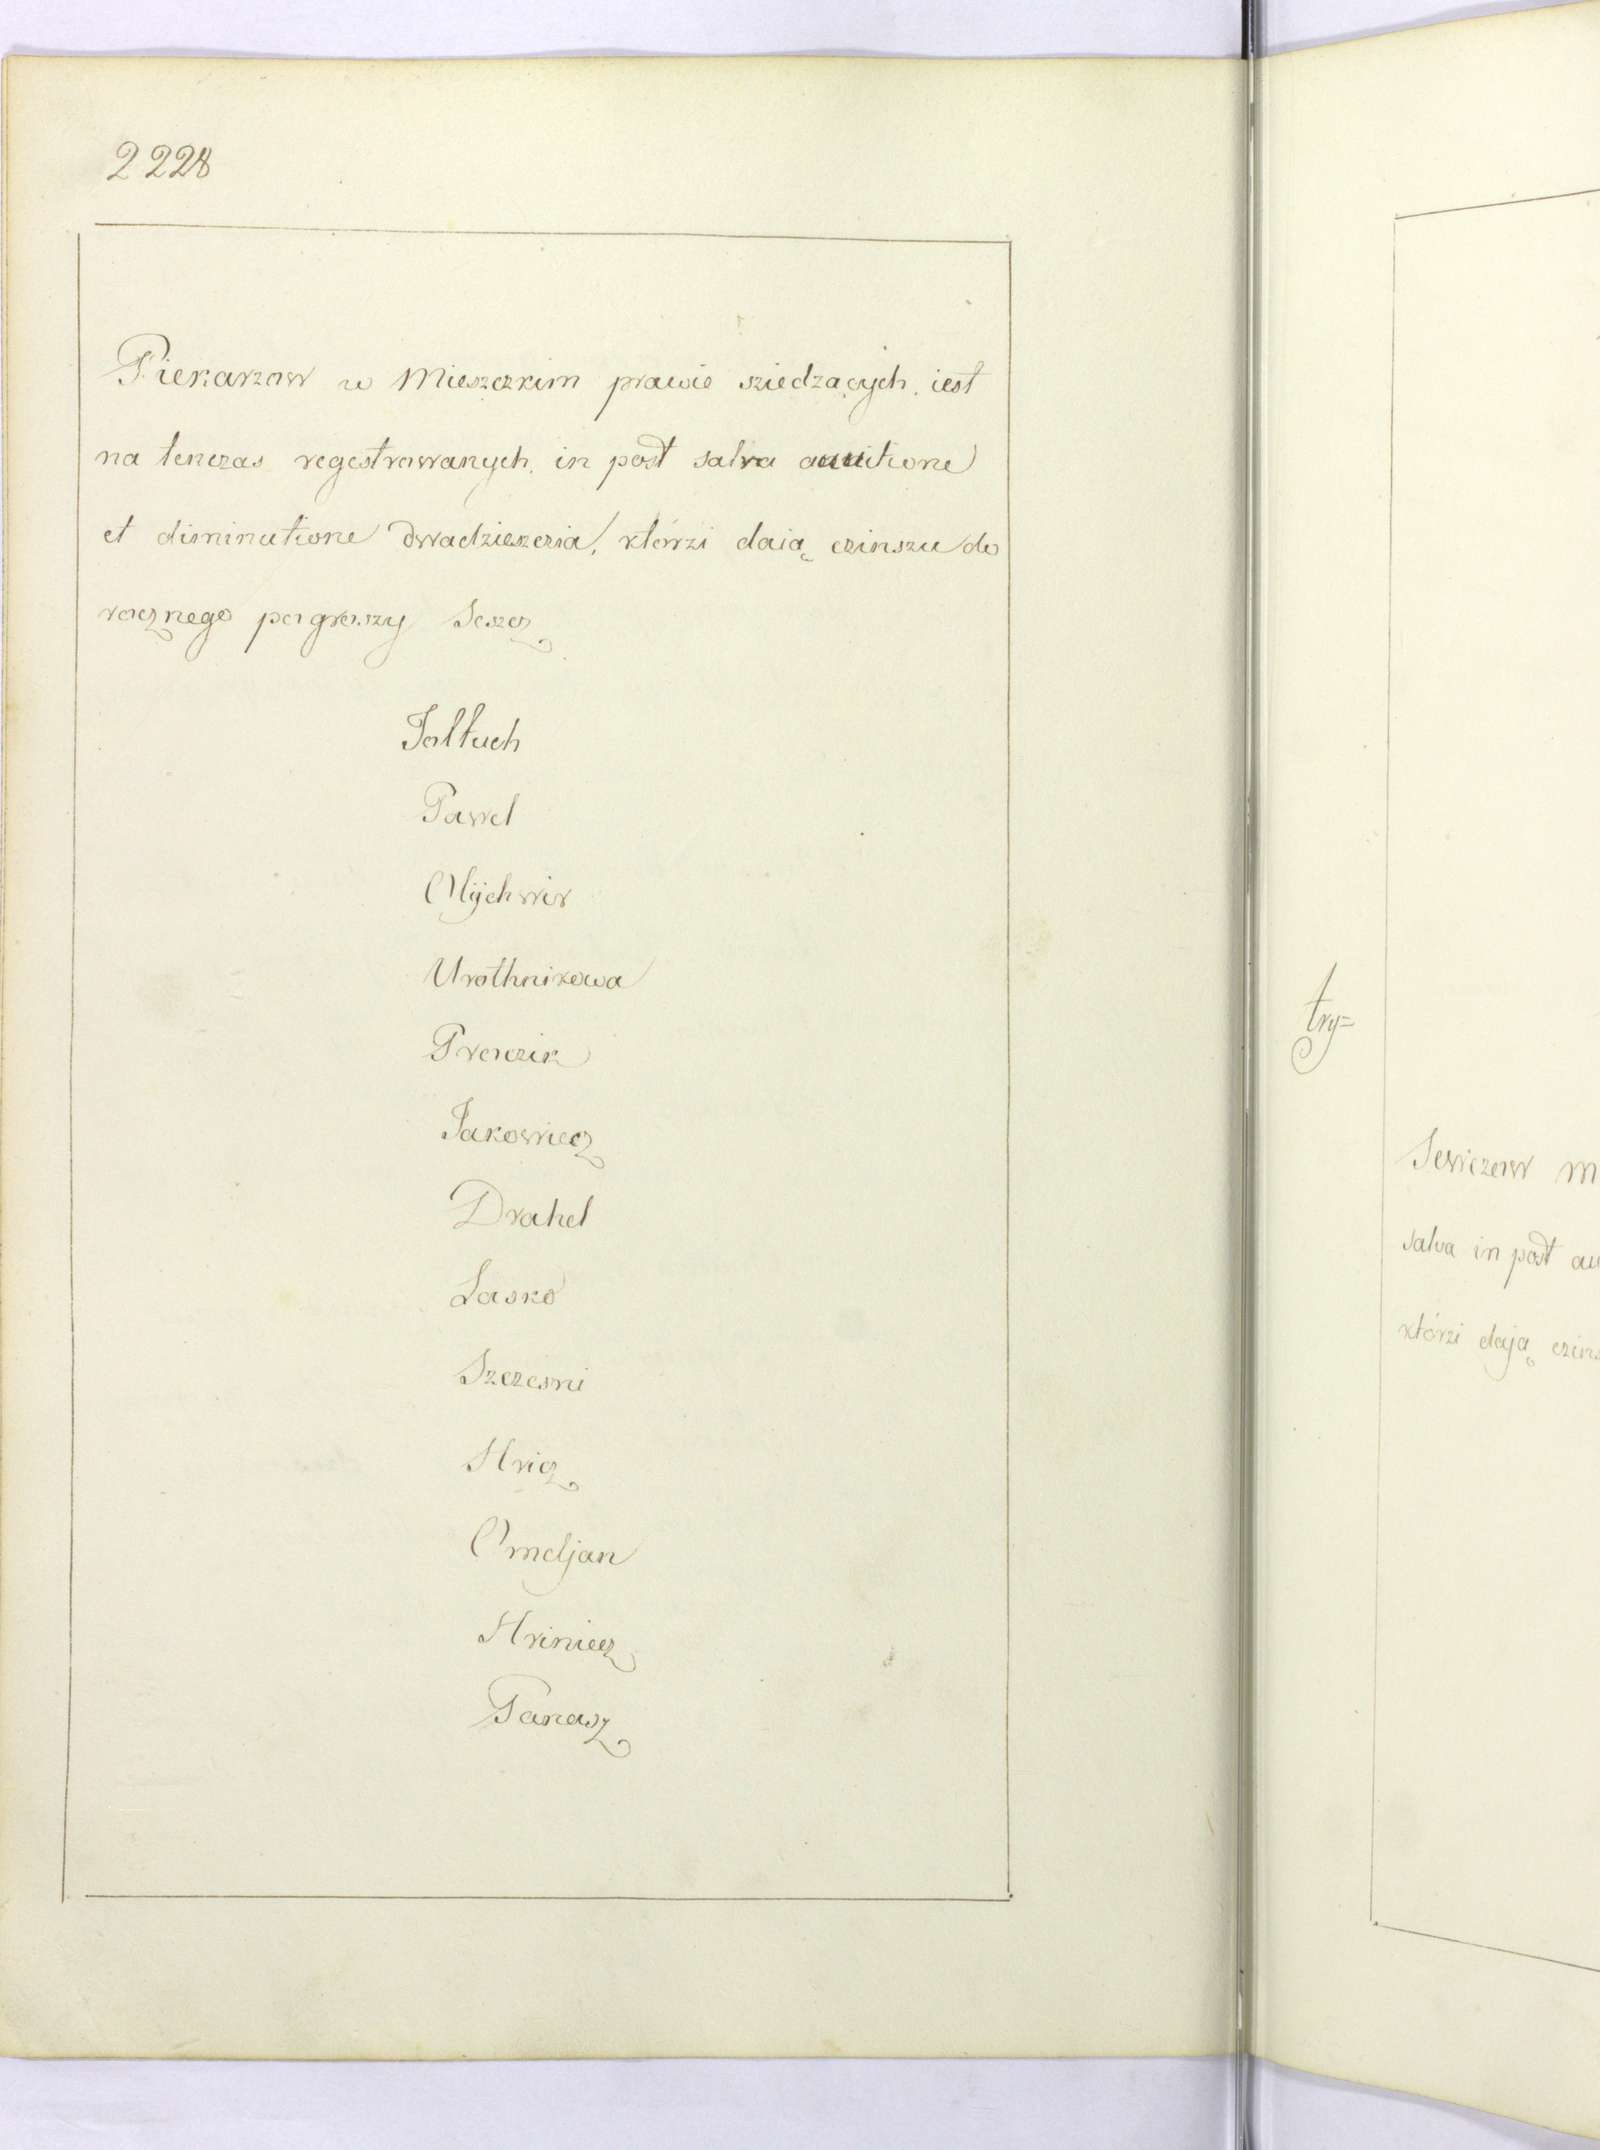 2228
Piekarzow w Mieszczkim prawie sziedzących. iest
na tenczas regestrowanych. in post salva auutione
et diminutione dwadzieszczia, którzi daią czinszu do
rocznego po groszy Szescz
Jałtuch
Pawel
Olÿchwir
Urothnikowa
Proczik
Jakowiecz
Drahel
Lasko
Szczesni
Hricz
Omeljan
Hriniecz
Panasz
try=
Sewczow m
salva in post au
którzi dają czins